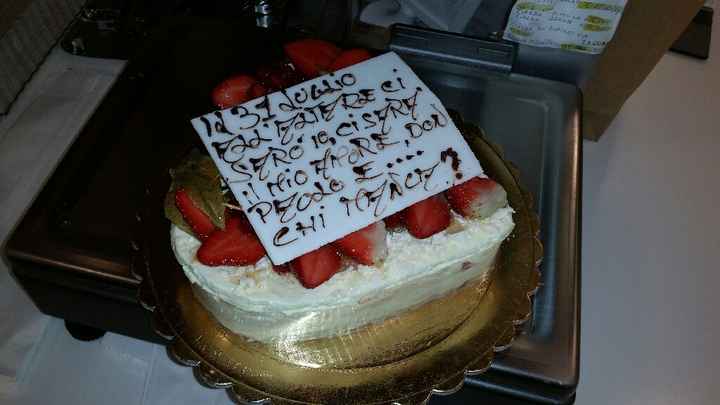 il 31 LUGLIO
ALL'ALTARE CI
SARÒ IO, CI SARÀ
il MIO AMORE, DON
PAOLO E....
CHI MANCA?